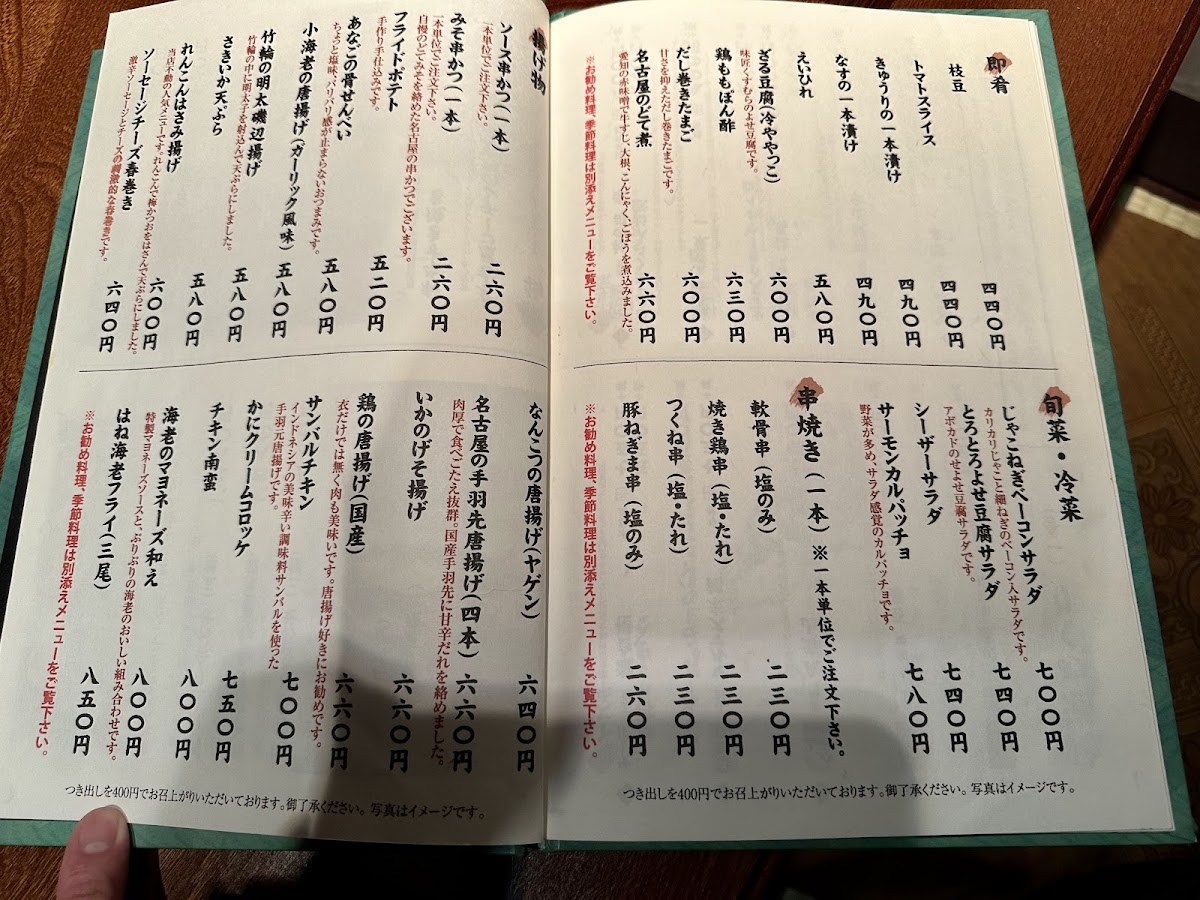 即肴
枝豆 四四〇円
トマトスライス 四四〇円
きゅうりの一本漬け 四九〇円
なすの一本漬け 四九〇円
えいひれ 五八〇円
ざる豆腐(冷ややっこ) 六〇〇円
味匠くすむらのよせ豆腐です。
鶏ももぽん酢 六三〇円
だし巻きたまご 六〇〇円
甘さを抑えただし巻きたまごです。
名古屋のどて煮 六六〇円
愛知の赤味噌で牛すじ、大根、こんにゃく、ごぼうを煮込みました。
※お勧め料理、季節料理は別添えメニューをご覧下さい。
旬菜・冷菜
じゃこねぎベーコンサラダ 七〇〇円
カリカリじゃこと細ねぎのベーコン入サラダです。
とろとろよせ豆腐サラダ 七四〇円
アボカドのせよせ豆腐サラダです。
シーザーサラダ 七四〇円
サーモンカルパッチョ 七八〇円
野菜が多め、サラダ感覚のカルパッチョです。
串焼き(一本) ※一本単位でご注文下さい。
軟骨串(塩のみ) 二三〇円
焼き鶏串(塩・たれ) 二三〇円
つくね串(塩・たれ) 二三〇円
豚ねぎま串(塩のみ) 二六〇円
※お勧め料理、季節料理は別添えメニューをご覧下さい。
つき出しを400円でお召上がりいただいております。御了承ください。写真はイメージです。
揚げ物
ソース串かつ(一本) 二六〇円
一本単位でご注文下さい。
みそ串かつ(一本) 二六〇円
一本単位でご注文下さい。
自慢のどてみそを絡めた名古屋の串かつでございます。
フライドポテト 五二〇円
手作り手仕込みです。
あなごの骨せんべい 五八〇円
ちょっと塩味、パリパリ感が止まらないおつまみです。
小海老の唐揚げ(ガーリック風味) 五八〇円
竹輪の明太磯辺揚げ 五八〇円
竹輪の中に明太子を射込んで天ぷらにしました。
さきいか天ぷら 五八〇円
れんこんはさみ揚げ 六〇〇円
当店不動の人気メニューです。れんこんで梅かつおをはさんで天ぷらにしました。
ソーセージチーズ春巻き 六四〇円
激辛ソーセージとチーズの刺激的な春巻きです。
なんこつの唐揚げ(ヤゲン) 六四〇円
名古屋の手羽先唐揚げ(四本) 六六〇円
肉厚で食べごたえ抜群。国産手羽先に甘辛だれを絡めました。
いかのげそ揚げ 六六〇円
鶏の唐揚げ(国産) 六六〇円
衣だけでは無く肉も美味いです。唐揚げ好きにお勧めです。
サンバルチキン 七〇〇円
インドネシアの美味辛い調味料サンバルを使った
手羽元唐揚げです。
かにクリームコロッケ 七五〇円
チキン南蛮 八〇〇円
海老のマヨネーズ和え 八〇〇円
特製マヨネーズソースと、ぷりぷりの海老のおいしい組み合わせです。
はね海老フライ(三尾) 八五〇円
※お勧め料理、季節料理は別添えメニューをご覧下さい。
つき出しを400円でお召上がりいただいております。御了承ください。写真はイメージです。